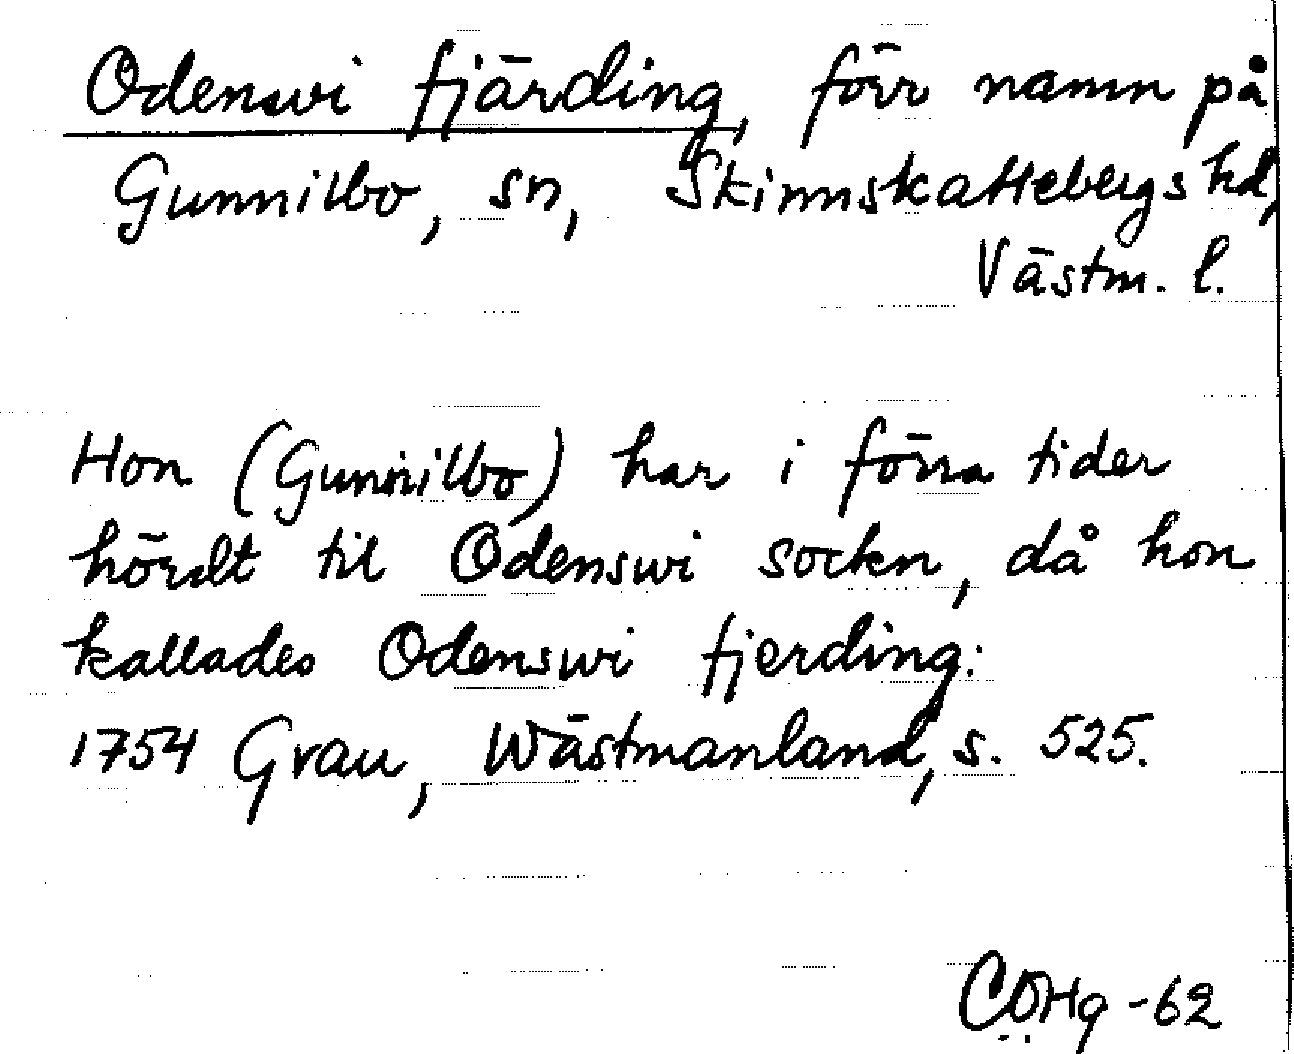 Odenswi fjärding, förr namn på
Gunnilbo, sn, Skinnskattebergs hd,
Västm. l.
Hon (Gunnilbo) har i förra tider
hördt til Odenswi sockn, då hon
kallades Odenswi fjerding:
1754 Grau, Wästmanland, s. 525.
CÖHg -62